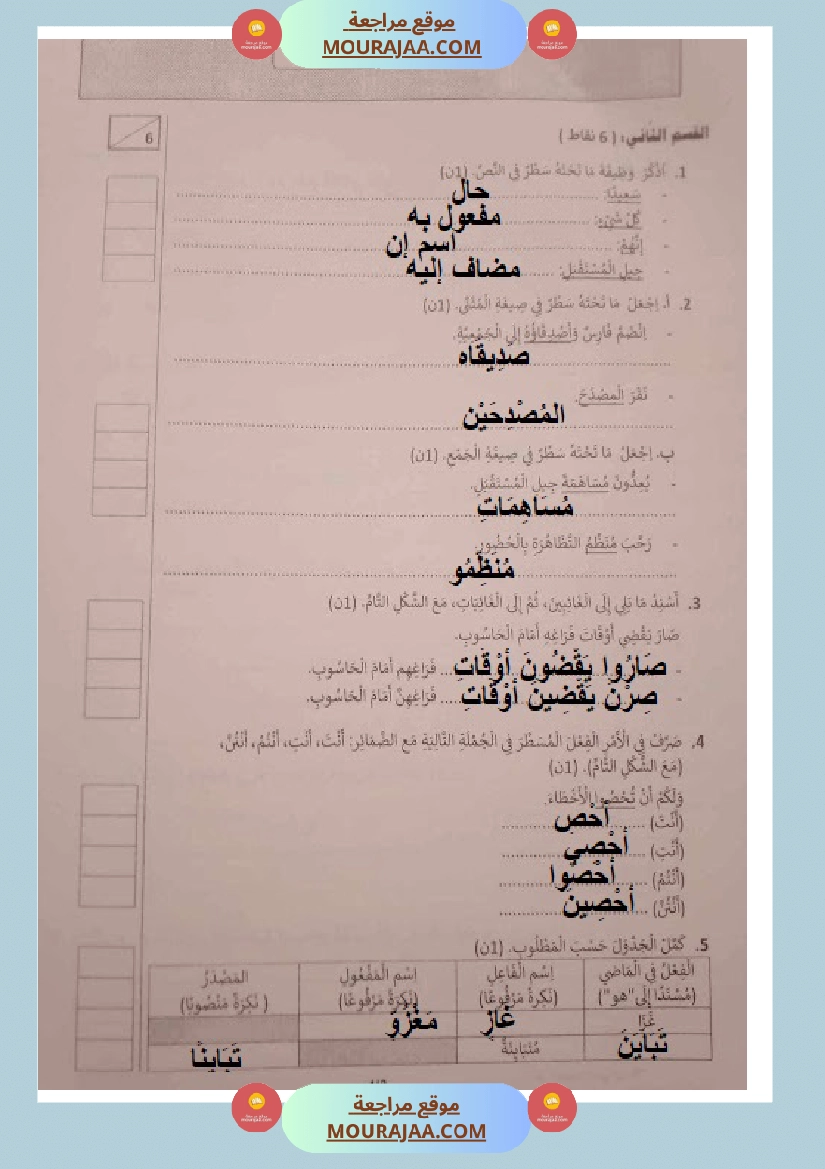 موقع مراجعة
MOURAJAA.COM
القسم الثاني: ( 6 نقاط )
6
1. أَذْكُرُ وَظِيفَةَ مَا تَحْتَهُ سَطْرٌ فِي النَّصِّ. (1ن)
- سَعِيدًا: حال
- كُلَّ شَيْءٍ: مفعول به
- إِنَّهُمْ: اسم إن
- جِيلِ الْمُسْتَقْبَلِ: مضاف إليه
2. أ. اِجْعَلْ مَا تَحْتَهُ سَطْرٌ فِي صِيغَةِ الْمُثَنَّى. (1ن)
- اِنْضَمَّ فَارِسٌ وَأَصْدِقَاؤُهُ إِلَى الْجَمْعِيَّةِ.
صَدِيقَاه
- نَقَرَ الْمِصْدَحَ.
المُصْدِحَيْن
ب. اِجْعَلْ مَا تَحْتَهُ سَطْرٌ فِي صِيغَةِ الْجَمْعِ. (1ن)
- يُعِدُّونَ مُسَاهَمَةَ جِيلِ الْمُسْتَقْبَلِ.
مُسَاهِمَاتِ
- رَحَّبَ مُنَظِّمُ التَّظَاهُرَةِ بِالْحُضُورِ.
مُنَظِّمُو
3. أُسْنِدُ مَا يَلِي إِلَى الْغَائِبِينَ، ثُمَّ إِلَى الْغَائِبَاتِ، مَعَ الشَّكْلِ التَّامِّ. (1ن)
صَارَ يَقْضِي أَوْقَاتَ فَرَاغِهِ أَمَامَ الْحَاسُوبِ.
- صَارُوا يَقْضُونَ أَوْقَاتِ ... فَرَاغِهِم أَمَامَ الْحَاسُوبِ.
- صِرْنَ يَقْضِينَ أَوْقَاتِ ..... فَرَاغِهِنَّ أَمَامَ الْحَاسُوبِ.
4. صَرِّفْ فِي الْأَمْرِ الْفِعْلَ الْمُسَطَّرَ فِي الْجُمْلَةِ التَّالِيَةِ مَعَ الضَّمَائِرِ: أَنْتَ، أَنْتِ، أَنْتُمْ، أَنْتُنَّ،
(مَعَ الشَّكْلِ التَّامِّ). (1ن)
وَلَكُمْ أَنْ تُحْصُوا الْأَخْطَاءَ.
(أَنْتَ) أَحْصِ
(أَنْتِ) أَحْصِي
(أَنْتُمْ) أَحْصُوا
(أَنْتُنَّ) أَحْصِينَ
5. كَمِّلِ الْجَدْوَلَ حَسَبَ الْمَطْلُوبِ. (1ن)
الْفِعْلُ فِي الْمَاضِي (مُسْنَدًا إِلَى "هو") اِسْمُ الْفَاعِلِ (نَكِرَةً مَرْفُوعًا) اِسْمُ الْمَفْعُولِ (نَكِرَةً مَرْفُوعًا) الْمَصْدَرُ ( نَكِرَةً مَنْصُوبًا)
غَزَا غَازٍ مَغْزُوّ
تَبَايَنَ مُتَبَايِنَةٌ تَبَايِنًا
موقع مراجعة
MOURAJAA.COM